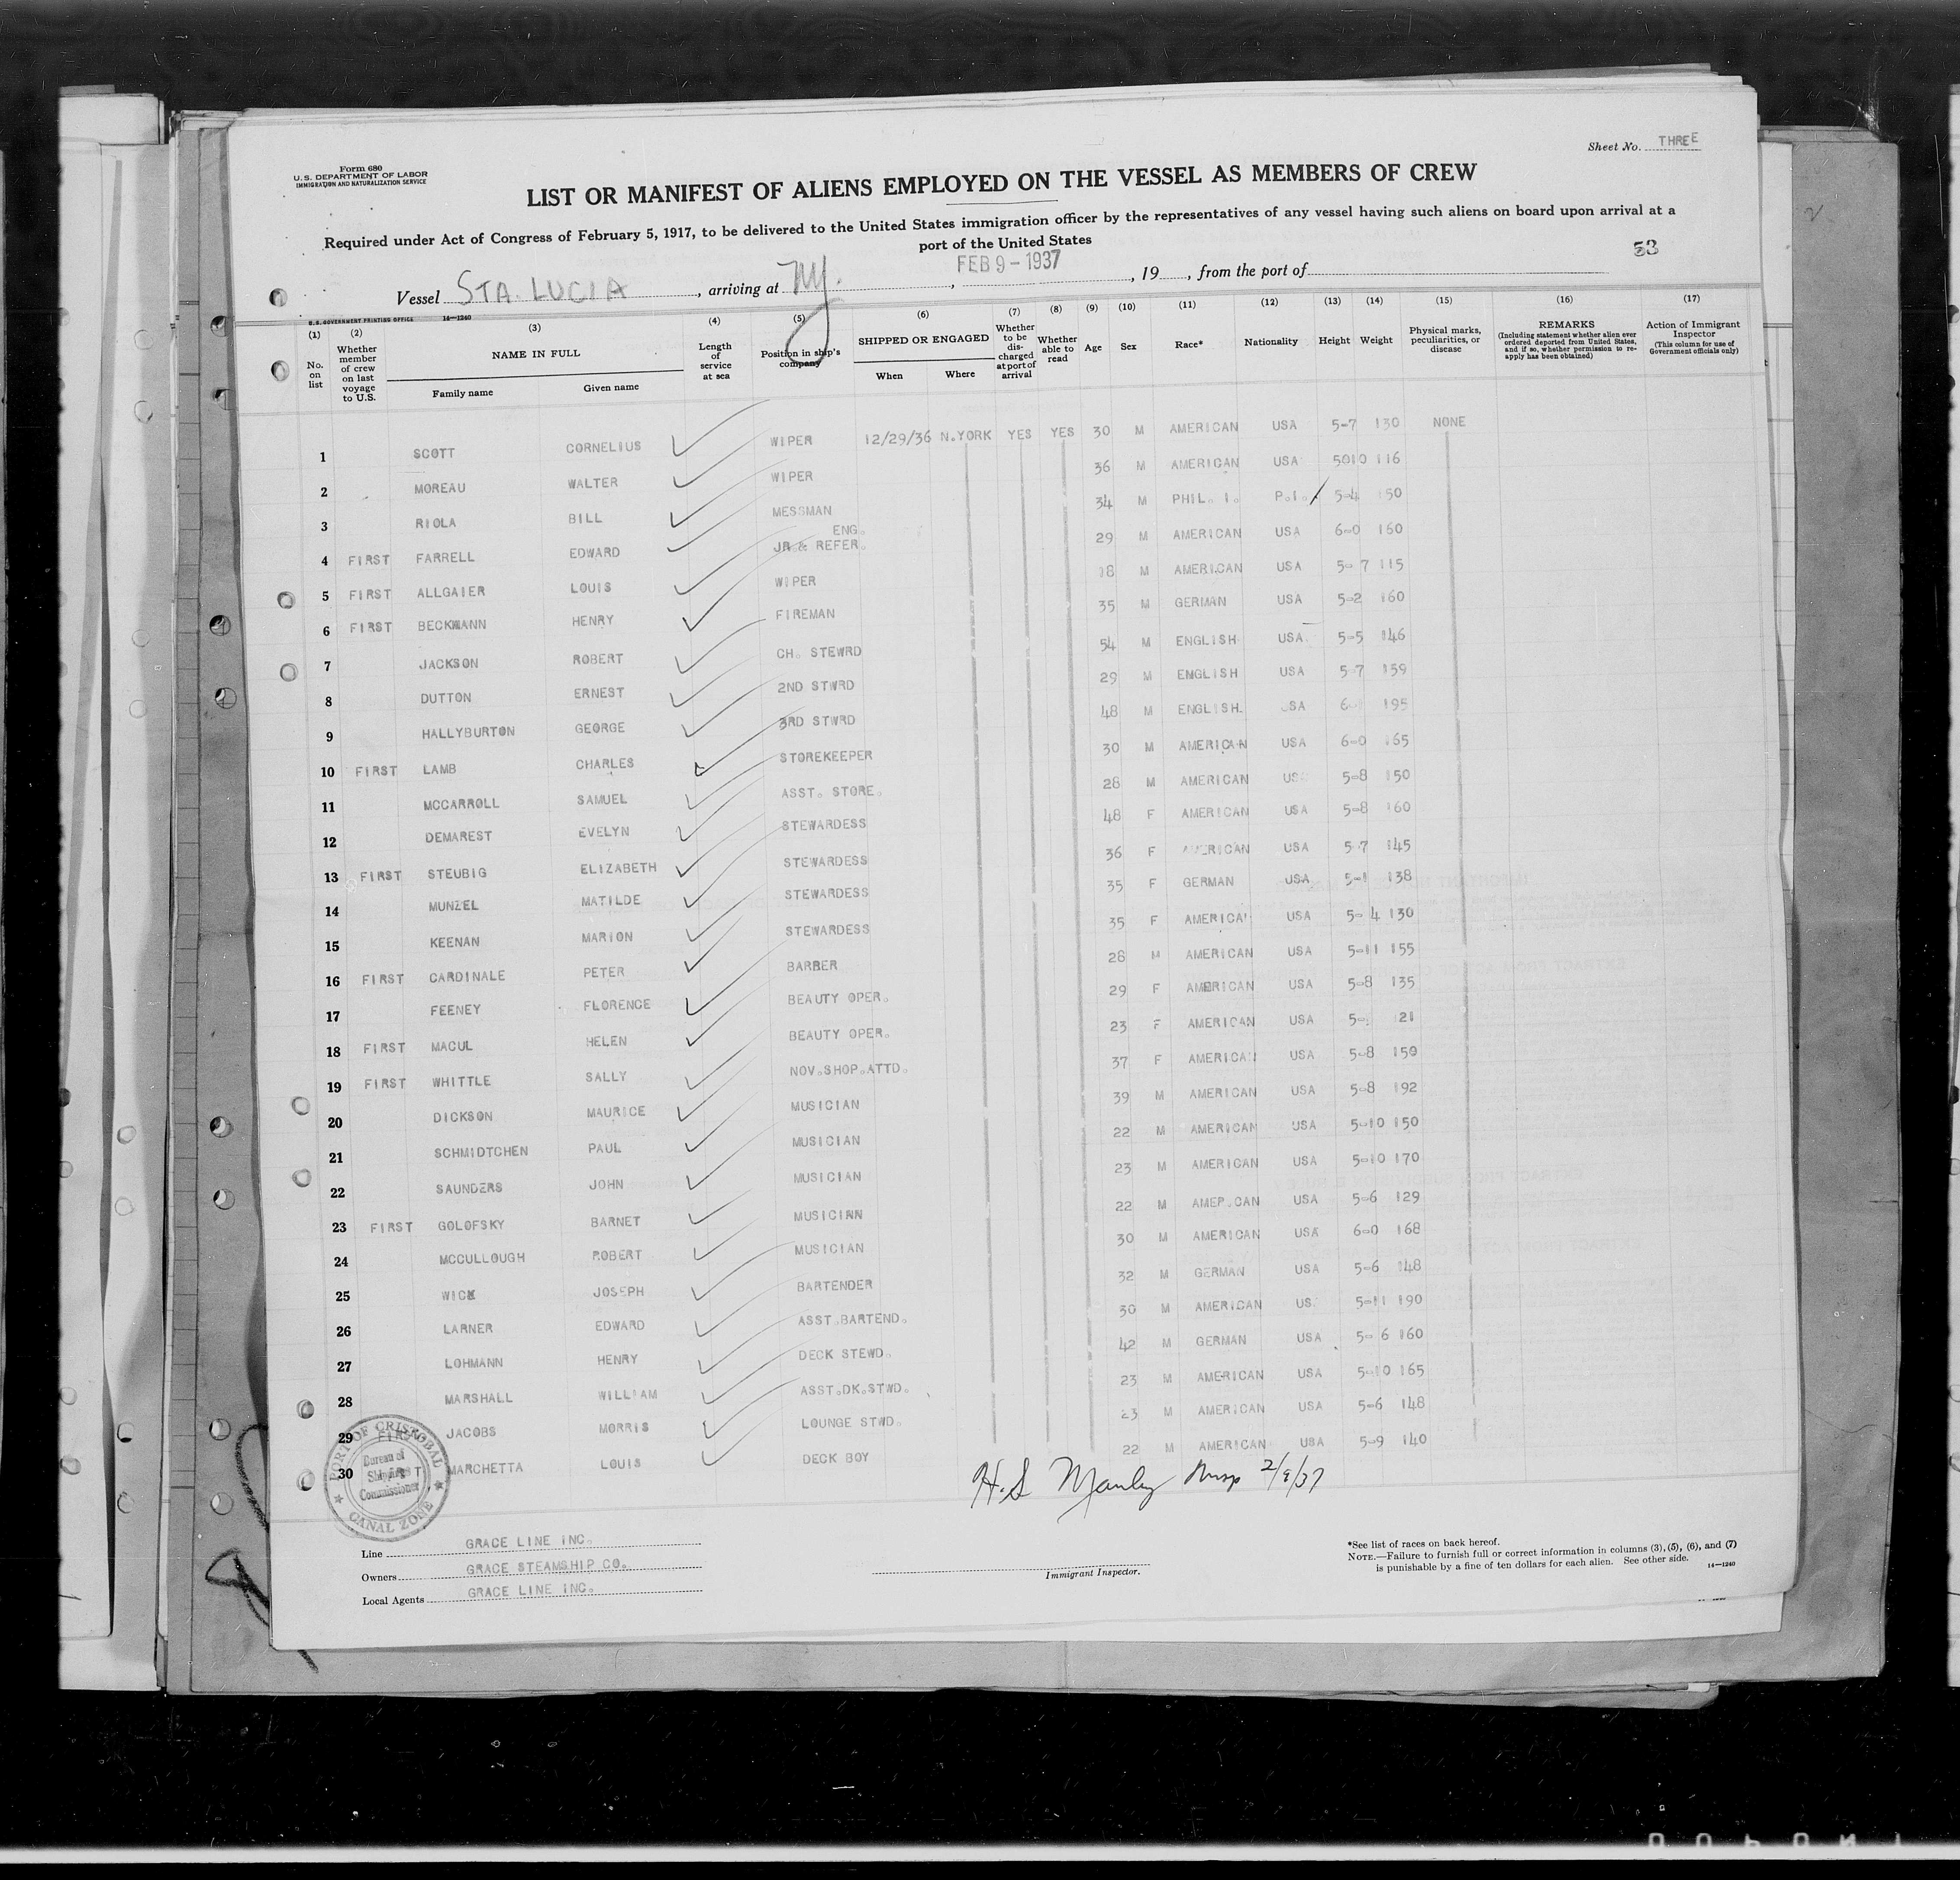 Sheet No. THREE
Form 680
U.S. DEPARTMENT OF LABOR
IMMIGRATION AND NATURALIZATION SERVICE
LIST OR MANIFEST OF ALIENS EMPLOYED ON THE VESSEL AS MEMBERS OF CREW
Required under Act of Congress of February 5, 1917, to be delivered to the United States immigration officer by the representatives of any vessel having such aliens on board upon arrival at a
port of the United States
53
Vessel STA. LUCIA, arriving at NY., FEB 9 - 1937, 19, from the port of
U.S. GOVERNMENT PRINTING OFFICE 14—1240
(1) (2) (3) (4) (5) (6) (7) (8) (9) (10) (11) (12) (13) (14) (15) (16) (17)
No. on list
Whether member of crew on last voyage to U.S.
NAME IN FULL
Family name Given name
Length of service at sea
Position in ship's company
SHIPPED OR ENGAGED
When Where
Whether to be discharged at port of arrival
Whether able to read
Age
Sex
Race*
Nationality
Height
Weight
Physical marks, peculiarities, or disease
REMARKS
(Including statement whether alien ever ordered deported from United States, and if so, whether permission to re-apply has been obtained)
Action of Immigrant Inspector
(This column for use of Government officials only)
1 SCOTT CORNELIUS WIPER 12/29/36 N.YORK YES YES 30 M AMERICAN USA 5-7 130 NONE
2 MOREAU WALTER WIPER 36 M AMERICAN USA 5010 116
3 RIOLA BILL MESSMAN 34 M PHIL. I. P.I. 5-4 150
4 FIRST FARRELL EDWARD JR & REFER. ENG. 29 M AMERICAN USA 6-0 160
5 FIRST ALLGAIER LOUIS WIPER 18 M AMERICAN USA 5-7 115
6 FIRST BECKMANN HENRY FIREMAN 35 M GERMAN USA 5-2 160
7 JACKSON ROBERT CH. STEWRD 54 M ENGLISH USA 5-5 146
8 DUTTON ERNEST 2ND STWRD 29 M ENGLISH USA 5-7 159
9 HALLYBURTON GEORGE 3RD STWRD 48 M ENGLISH USA 195
10 FIRST LAMB CHARLES STOREKEEPER 30 M AMERICAN USA 6-0 165
11 MCCARROLL SAMUEL ASST. STORE. 28 M AMERICAN US 5-8 150
12 DEMAREST EVELYN STEWARDESS 48 F AMERICAN USA 5-8 160
13 FIRST STEUBIG ELIZABETH STEWARDESS 36 F AMERICAN USA 5-7 145
14 MUNZEL MATILDE STEWARDESS 35 F GERMAN USA 5-1 138
15 KEENAN MARION STEWARDESS 35 F AMERICAN USA 5-4 130
16 FIRST CARDINALE PETER BARBER 28 M AMERICAN USA 5-11 155
17 FEENEY FLORENCE BEAUTY OPER. 29 F AMERICAN USA 5-8 135
18 FIRST MACUL HELEN BEAUTY OPER. 23 F AMERICAN USA
19 FIRST WHITTLE SALLY NOV.SHOP.ATTD. 37 F AMERICAN USA 5-8 159
20 DICKSON MAURICE MUSICIAN 39 M AMERICAN USA 5-8 192
21 SCHMIDTCHEN PAUL MUSICIAN 22 M AMERICAN USA 5-10 150
22 SAUNDERS JOHN MUSICIAN 23 M AMERICAN USA 5-10 170
23 FIRST GOLOFSKY BARNET MUSICIAN 22 M AMERICAN USA 5-6 129
24 MCCULLOUGH ROBERT MUSICIAN 30 M AMERICAN USA 6-0 168
25 WICK JOSEPH BARTENDER 32 M GERMAN USA 5-6 148
26 LARNER EDWARD ASST.BARTEND. 30 M AMERICAN US 5-11 190
27 LOHMANN HENRY DECK STEWD. 42 M GERMAN USA 5-6 160
28 MARSHALL WILLIAM ASST.DK.STWD. 23 M AMERICAN USA 5-10 165
29 FIRST JACOBS MORRIS LOUNGE STWD. 23 M AMERICAN USA 5-6 148
30 MARCHETTA LOUIS DECK BOY 22 M AMERICAN USA 5-9 140
PORT OF CRISTOBAL
Bureau of
Shipping
Commissioner
CANAL ZONE
H.S Manley Insp 2/9/37
Line GRACE LINE INC.
Owners GRACE STEAMSHIP CO.
Local Agents GRACE LINE INC.
Immigrant Inspector.
*See list of races on back hereof.
NOTE.—Failure to furnish full or correct information in columns (3), (5), (6), and (7)
is punishable by a fine of ten dollars for each alien. See other side. 14—1240